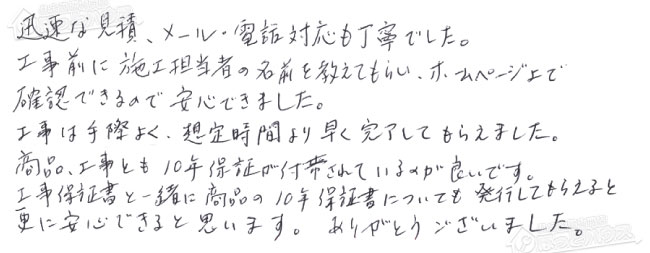 迅速な見積、メール・電話対応も丁寧でした。
工事前に施工担当者の名前を教えてもらい、ホームページ上で
確認できるので安心できました。
工事は手際よく、想定時間より早く完了してもらえました。
商品、工事とも10年保証が付帯されているのが良いです。
工事保証書と一緒に商品の10年保証書についても発行してもらえると
更に安心できると思います。ありがとうございました。